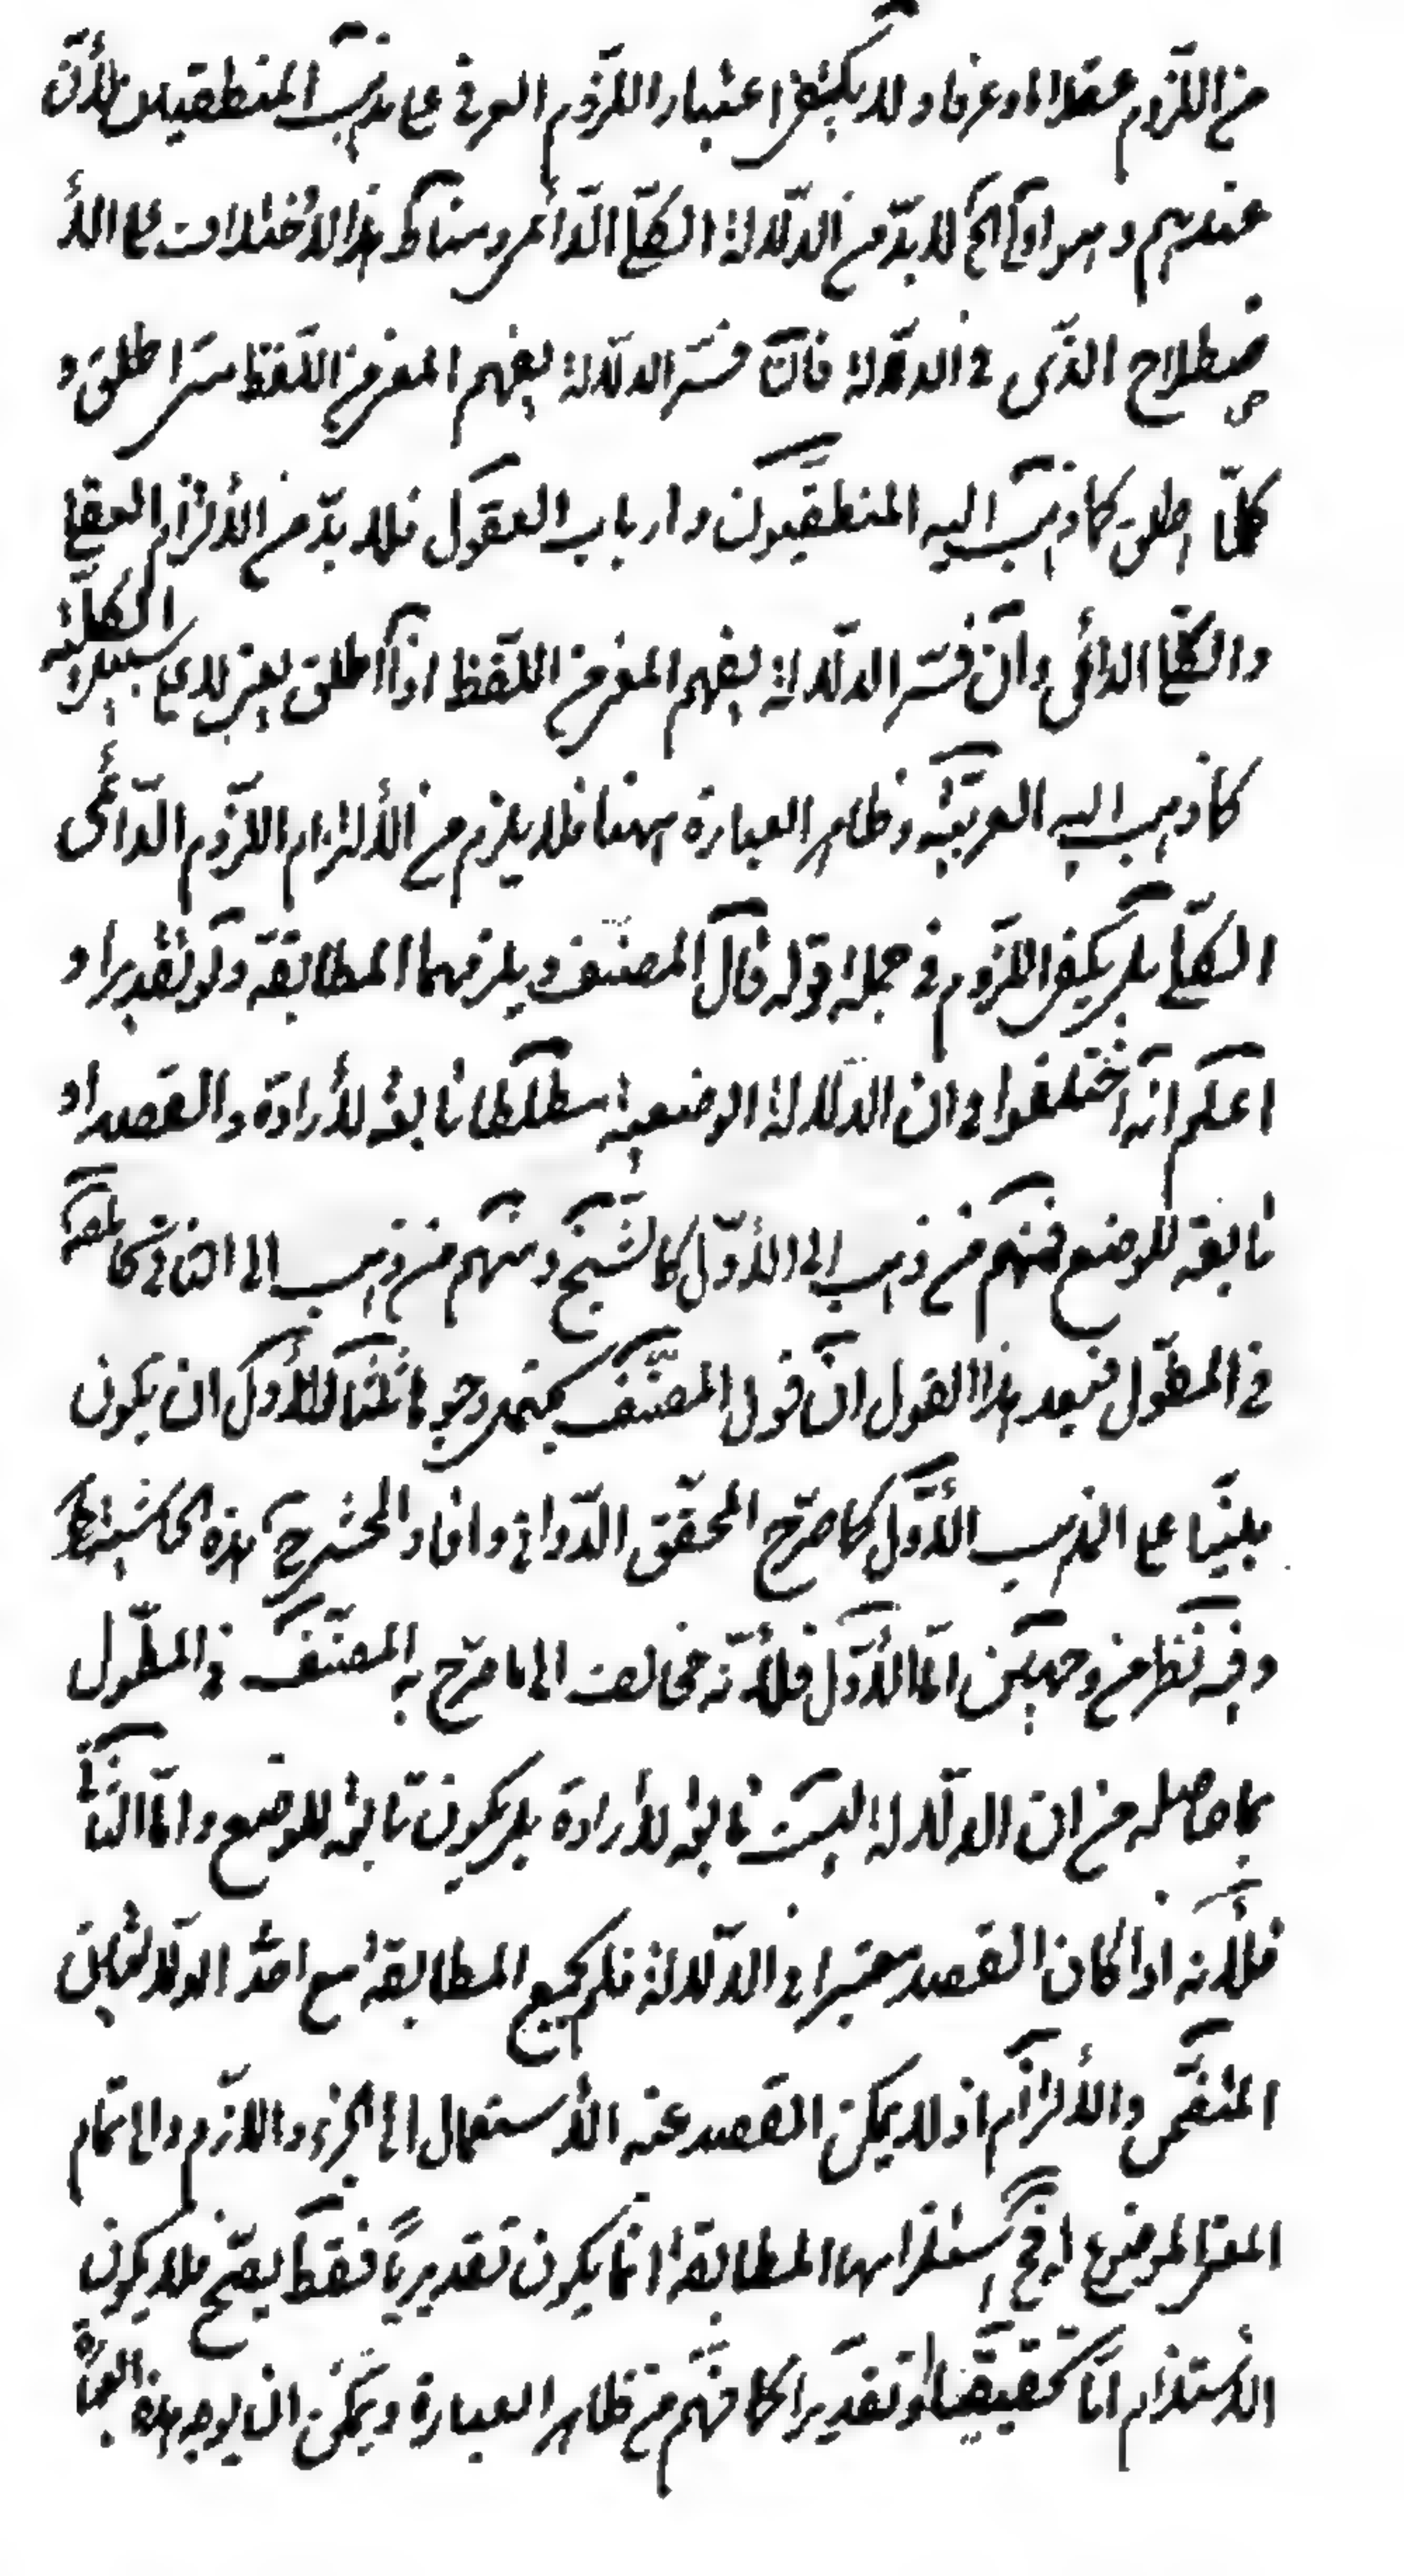 من اللزوم عقلا او عرفا ولا يكفى اعتبار اللزوم العرفى على مذهب المنطقيين لأنّ
عندهم لا بدّ من الدّلالة الكلّى الدّائمى ومناط هذا الاختلاف على الأ
صطلاح الذّى فى الدلالة فان فسّر الدلالة بفهم المعنى من اللّفظ متى اطلق و
كلّما اطلق كما ذهب اليه المنطقيّون وارباب العقول فلا بدّ من الألتزام العقلى
والكلّى الدائمى وان فسّر الدلالة بفهم المعنى من اللّفظ اذا اطلق يعنى لا على سبيل الكلّية
كما ذهب اليه العربيّه وظاهر العبارة ههنا فلا يلزم من الألتزام اللّزوم الدّائمى
الكلّى بل يكفى اللزوم فى جملة قوله قال المصنّف ويلزمهما المطابقة ولو تقديرا و
اعلم انّه اختلفوا فى ان الدلالة الوضعية مطلقا تابعة للأرادة والقصد او
تابعة للوضع فمنهم من ذهب الى الأوّل كالشّيخ ومنهم من ذهب الى الثانى كالمصنّف
فى المطوّل فبعد هذا القول انّ قول المصنّف يحتمل وجوها ثلثا الأوّل ان يكون
مبنيّا على المذهب الأوّل كما صرّح المحقّق الدّوانى وافاد المحشى هذه الحاشية
وفيه نظر من وجهين امّا الأوّل فلأنّه مخالف الى ما صرّح به المصنّف فى المطوّل
بما حاصله من ان الدلالة ليست تابعة للأرادة بل يكون تابعة للوضع وامّا الثّانى
فلأنّه اذا كان القصد معتبرا فى الدّلالة فلم يجتمع المطابقة مع احد الدلالتين
التضمّن والألتزام اذ لا يمكن القصد عند الأستعمال الى الجزء واللازم والى تمام
المعنى الموضوع استلزامها المطابقة انما يكون تقديريّا فقط فلا يكون
الأستلزام امّا تحقيقا او تقديرا كما فهم من ظاهر العبارة ويمكن ان يوجه هذه العبارة